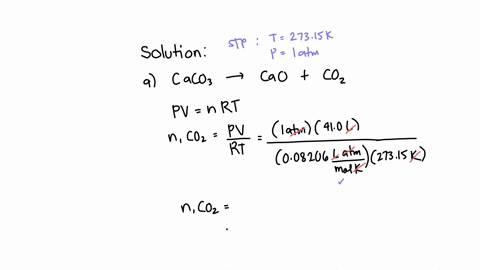 Solution:
STP : T = 273.15 K
P = 1 atm
a) CaCO₃ → CaO + CO₂
PV = nRT
n, CO₂ = PV/RT = (1 atm)(41.0 L)/(0.08206 L atm/mol K)(273.15 K)
n, CO₂ =